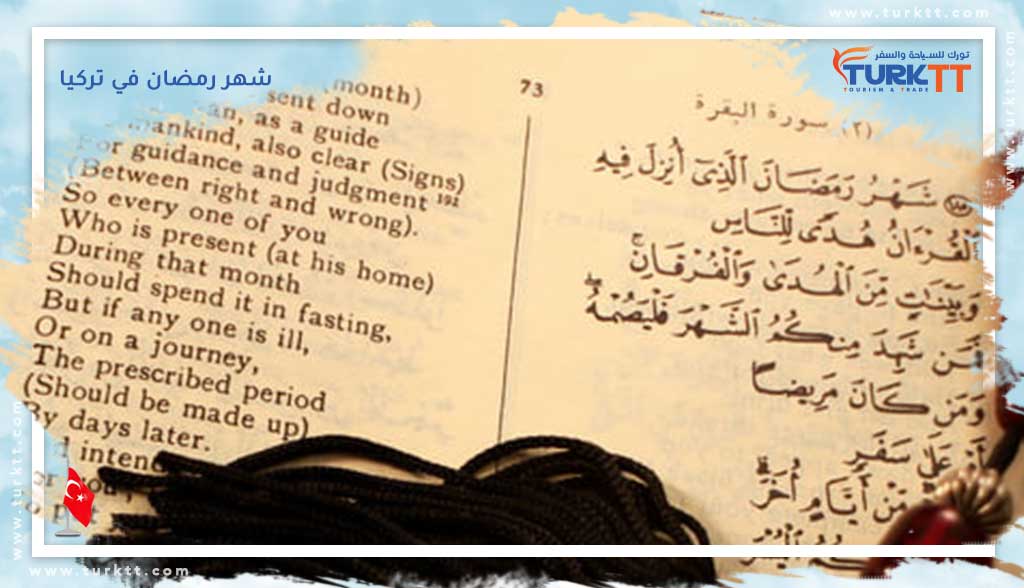 www.turktt.com
تورك للسياحة والسفر
TURKTT
TOURISM & TRADE
شهر رمضان في تركيا
month)
sent down
as a guide
mankind, also clear (Signs)
For guidance and judgment 192
(Between right and wrong).
So every one of you
Who is present (at his home)
During that month
Should spend it in fasting,
But if any one is ill,
Or on a journey,
The prescribed period
(Should be made up)
By days later.
73
سورة البقرة (٢)
شَهْرُ رَمَضَانَ ٱلَّذِىٓ أُنزِلَ فِيهِ
ٱلْقُرْءَانُ هُدًى لِّلنَّاسِ
وَبَيِّنَٰتٍ مِّنَ ٱلْهُدَىٰ وَٱلْفُرْقَانِ ۚ
فَمَن شَهِدَ مِنكُمُ ٱلشَّهْرَ فَلْيَصُمْهُ ۖ
وَمَن كَانَ مَرِيضًا
أَوْ عَلَىٰ سَفَرٍ
مِّنْ أَيَّامٍ أُخَرَ ۗ
www.turktt.com
www.turktt.com
www.turktt.com